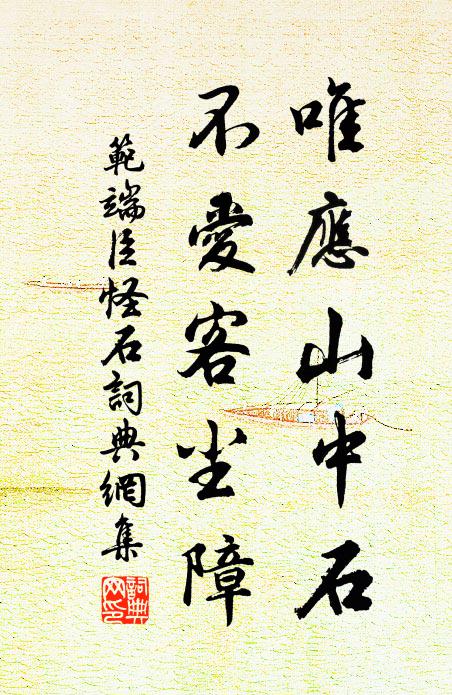 唯應山中石
不愛客尘障
範端臣怪石詞典網集
詞典
网印